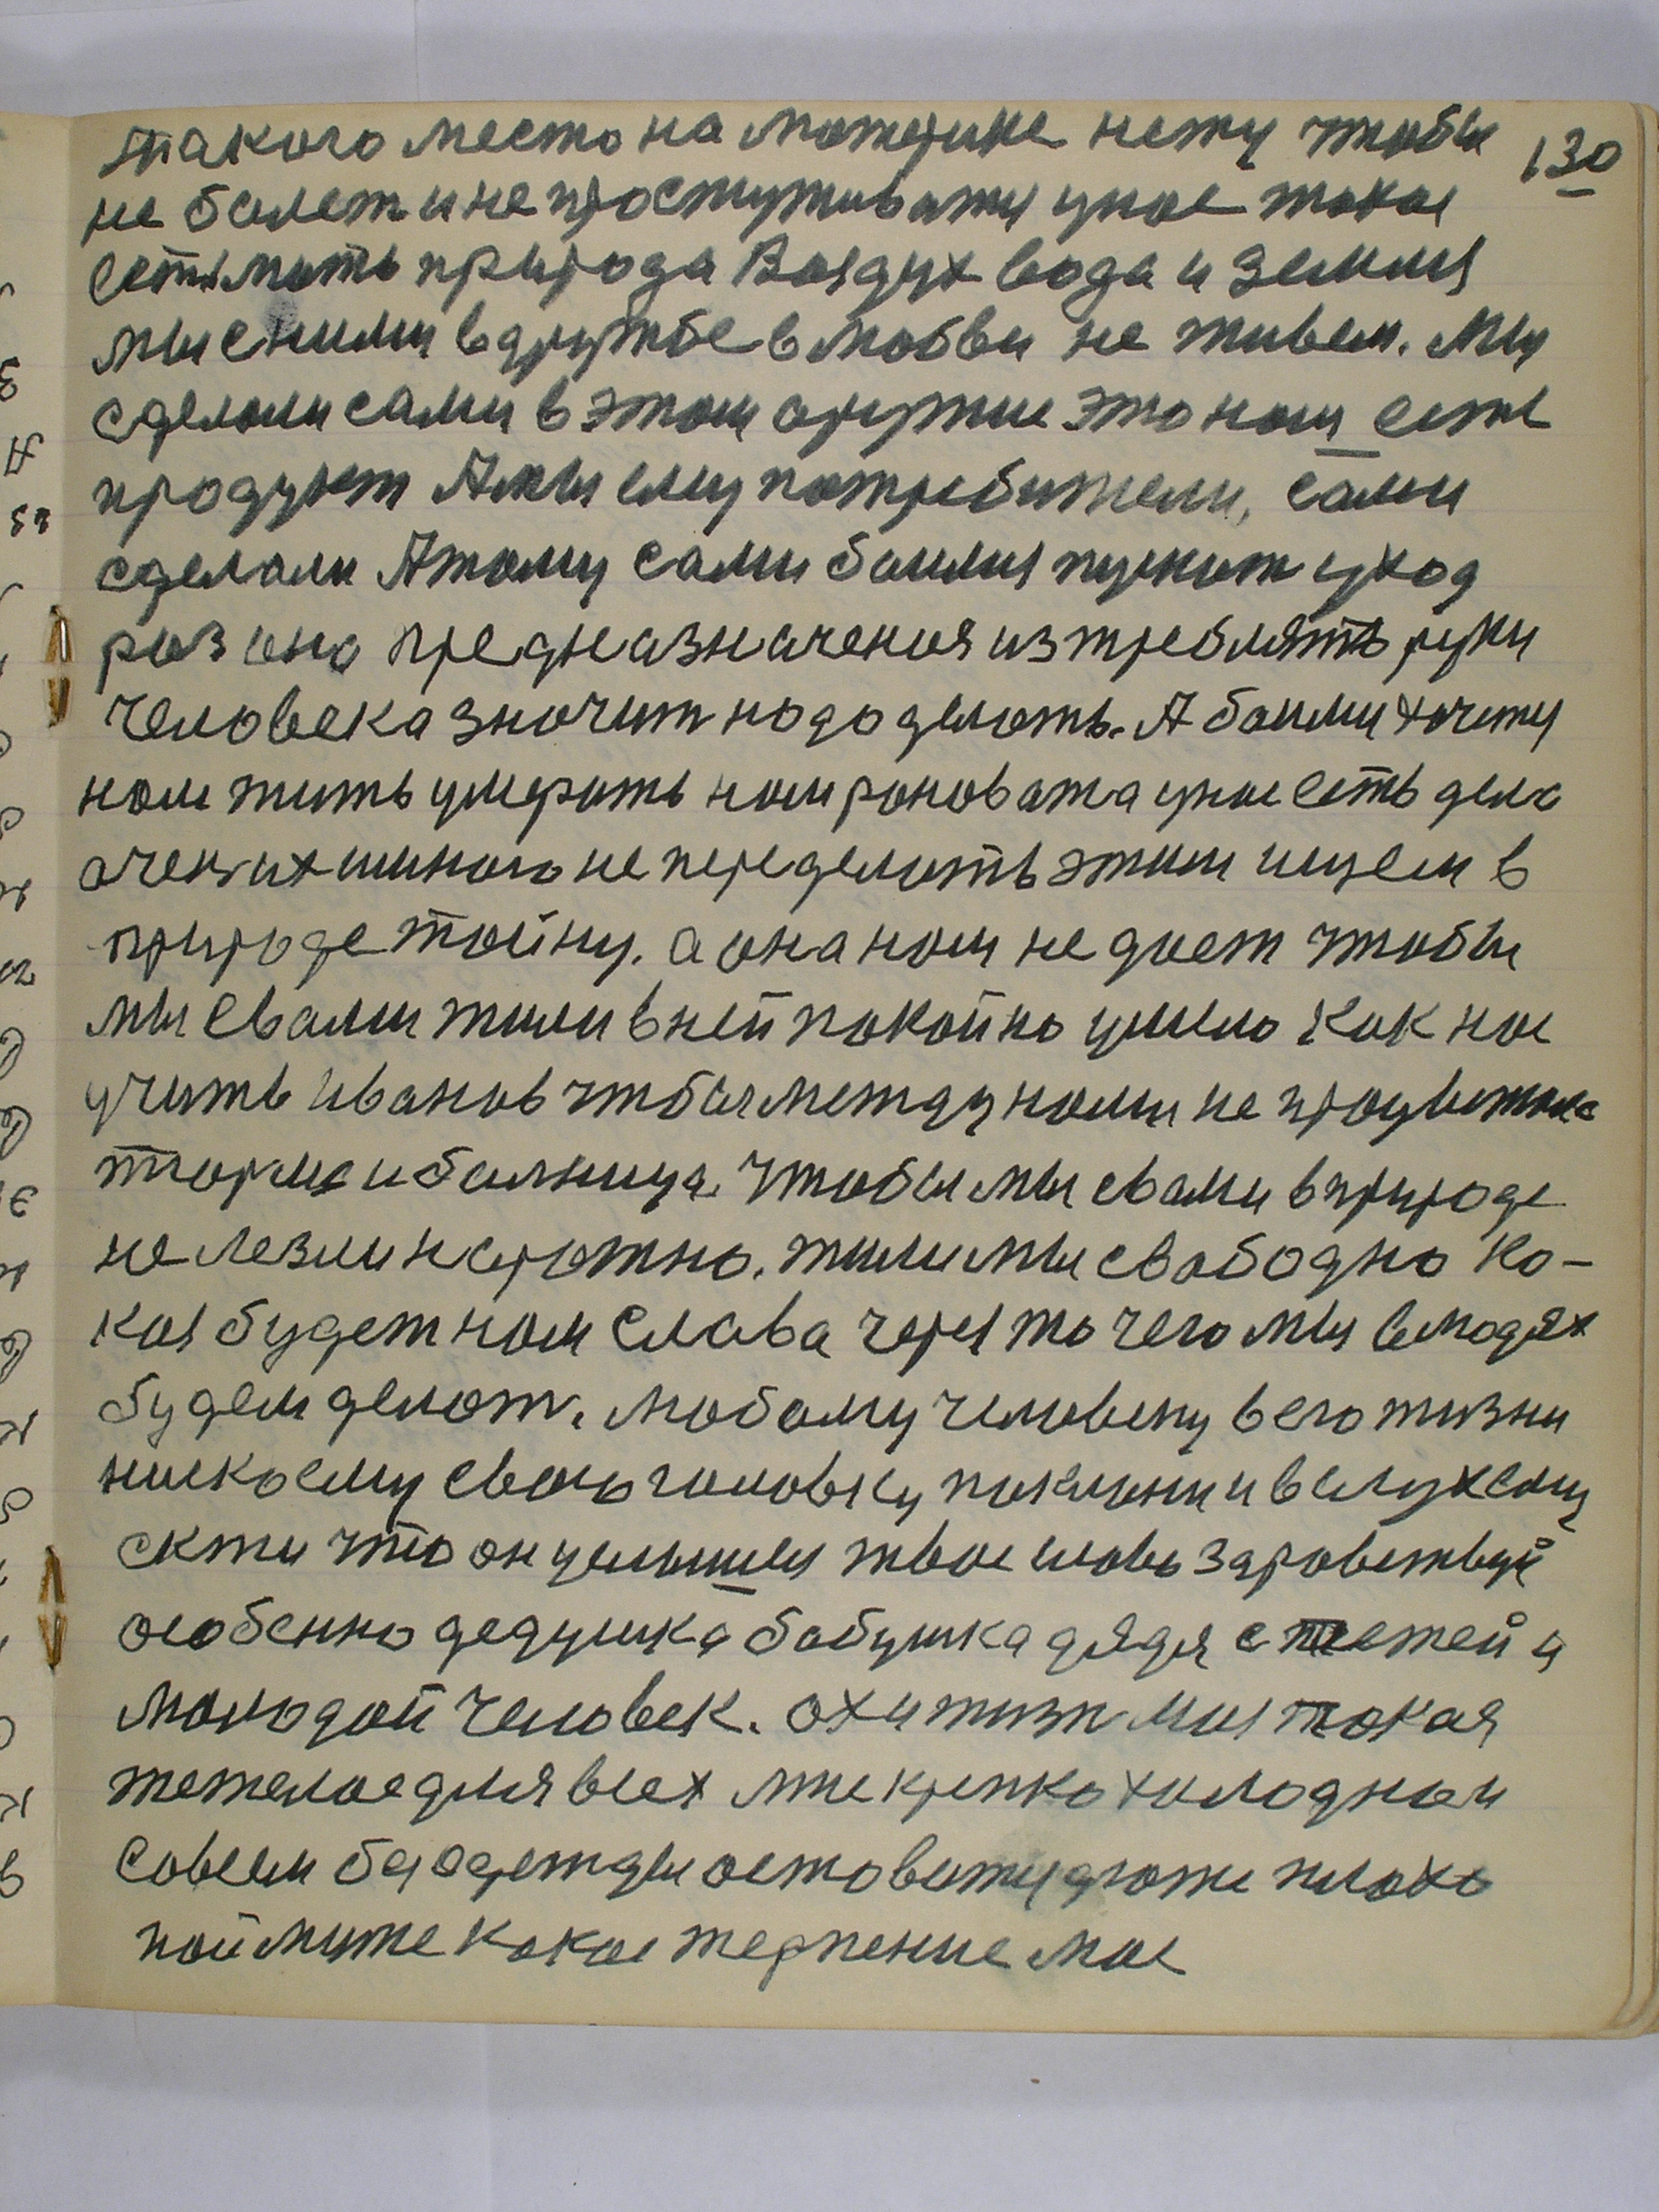 такого место на материке нету чтобы 130
не болет и не простуживатся унас такая
есть мать природа Воздух вода и земля
мы сними вдружбе влюбви не живем. Мы
сделали сами в этом оружие это нам есть
продукт Амы ему потребители, сами
сделали Атому сами боимся пускат уход
раз оно предназначения изтреблять руки
человека значит надо делать. А боими хочется
нам жить умерать нам рановата унас есть дела
очень их многого не переделать этим ищем в
природе тайну. а она нам не дает чтобы
мы свами жили вней покойно умело Как нас
учить Иванов чтобы между нами не процветала
тюрма и болница. Чтобы мы свами вприроде
не лезли нсротно. жили мы свабодно Ка-
кая будет нам Слава через то чего мы влюдях
будем делат. любому человеку вего жизни
ниско ему свою головку поклони и вслух ему
скжи что он услышея твое слово здравствуй
особенно дедушка бабушка дядя с тетей и
молодой человек. Ох и жизн моя такая
тежелое для всех мне крепко холодном
Совсем без одежды оставатся даже плохо
поймите какое терпение мое